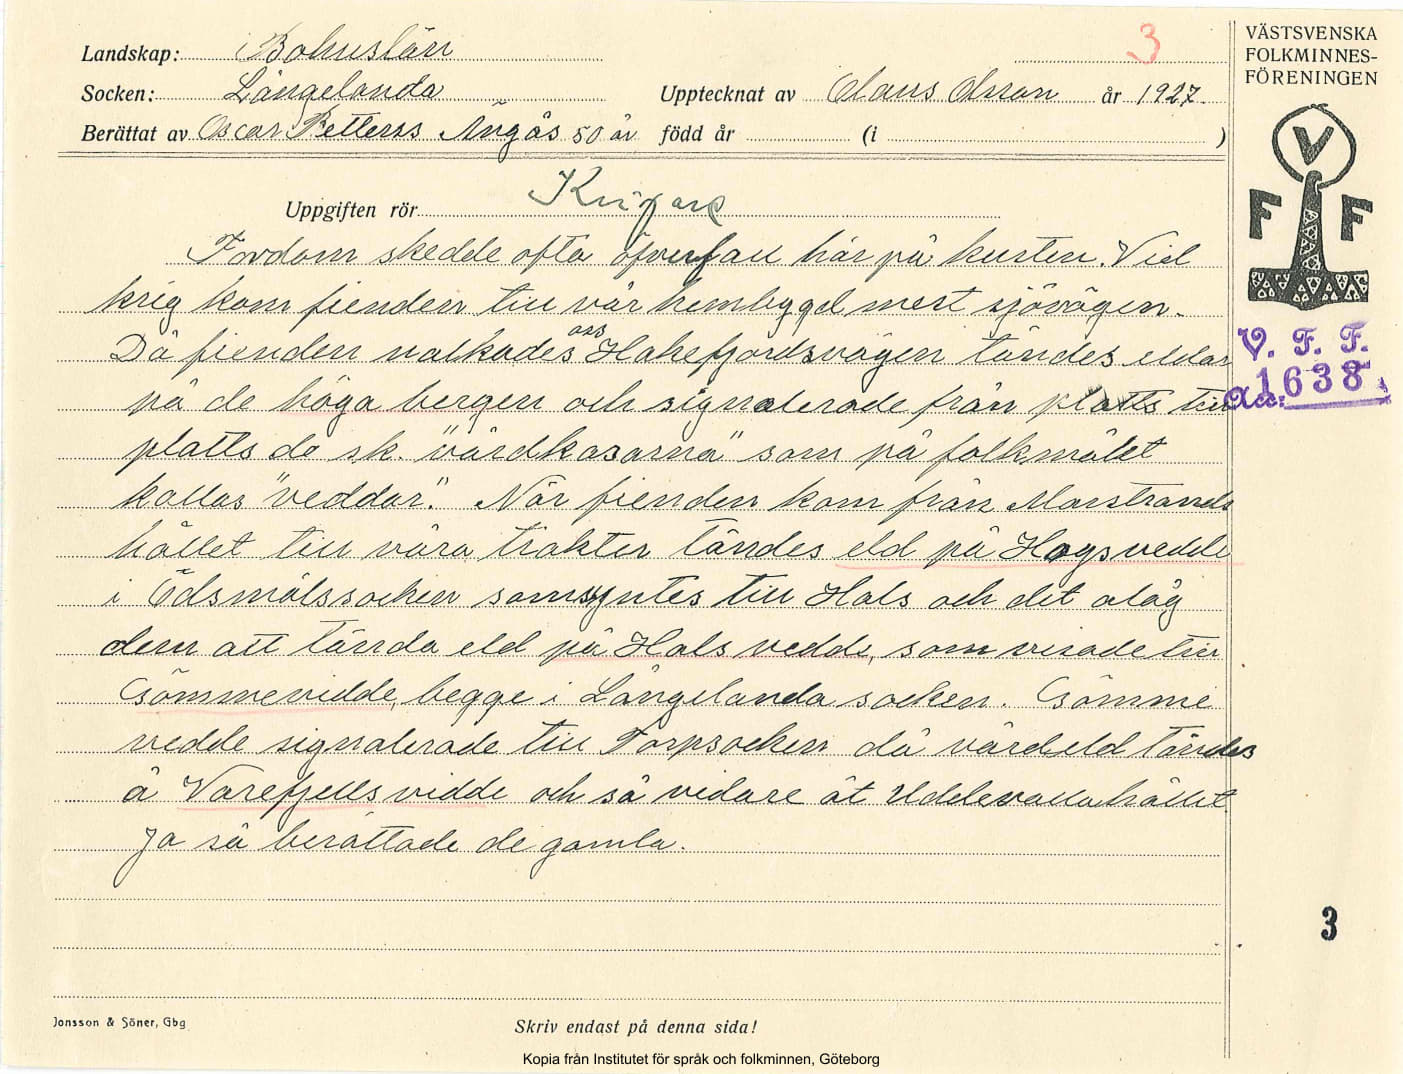 Landskap: Bohuslän
3
Socken: Långelanda Upptecknat av Claus Olsson år 1927.
Berättat av Oscar Petterss Ängås 50 år född år (i )
Uppgiften rör Krig
Fordom skedde ofta öfverfall här på kusten. Vid
krig kom fienden till vår hembygd mest sjövägen.
Då fienden nalkades oss Hakefjordsvägen tändes eldar
på de höga bergen och signalerade från platts till
platts de sk. "vårdkasarna" som på folkmålet
kallas "veddar". När fienden kom från Marstrands
hållet till våra trakter tändes eld på Hogsvedde
i Ödsmålssocken som syntes till Hals och det ålåg
dem att tända eld på Hals vedde, som visade till
Gömmevedde, begge i Långelanda socken. Gömme
vedde signalerade till Torpsocken då vårdeld tändes
å Varefjellsvidde och så vidare åt Uddevallahållet
Ja så berättade de gamla.
VÄSTSVENSKA
FOLKMINNES-
FÖRENINGEN
V
F F
V. F. F.
Acc: 1638
3
Jonsson & Söner, Gbg
Skriv endast på denna sida!
Kopia från Institutet för språk och folkminnen, Göteborg